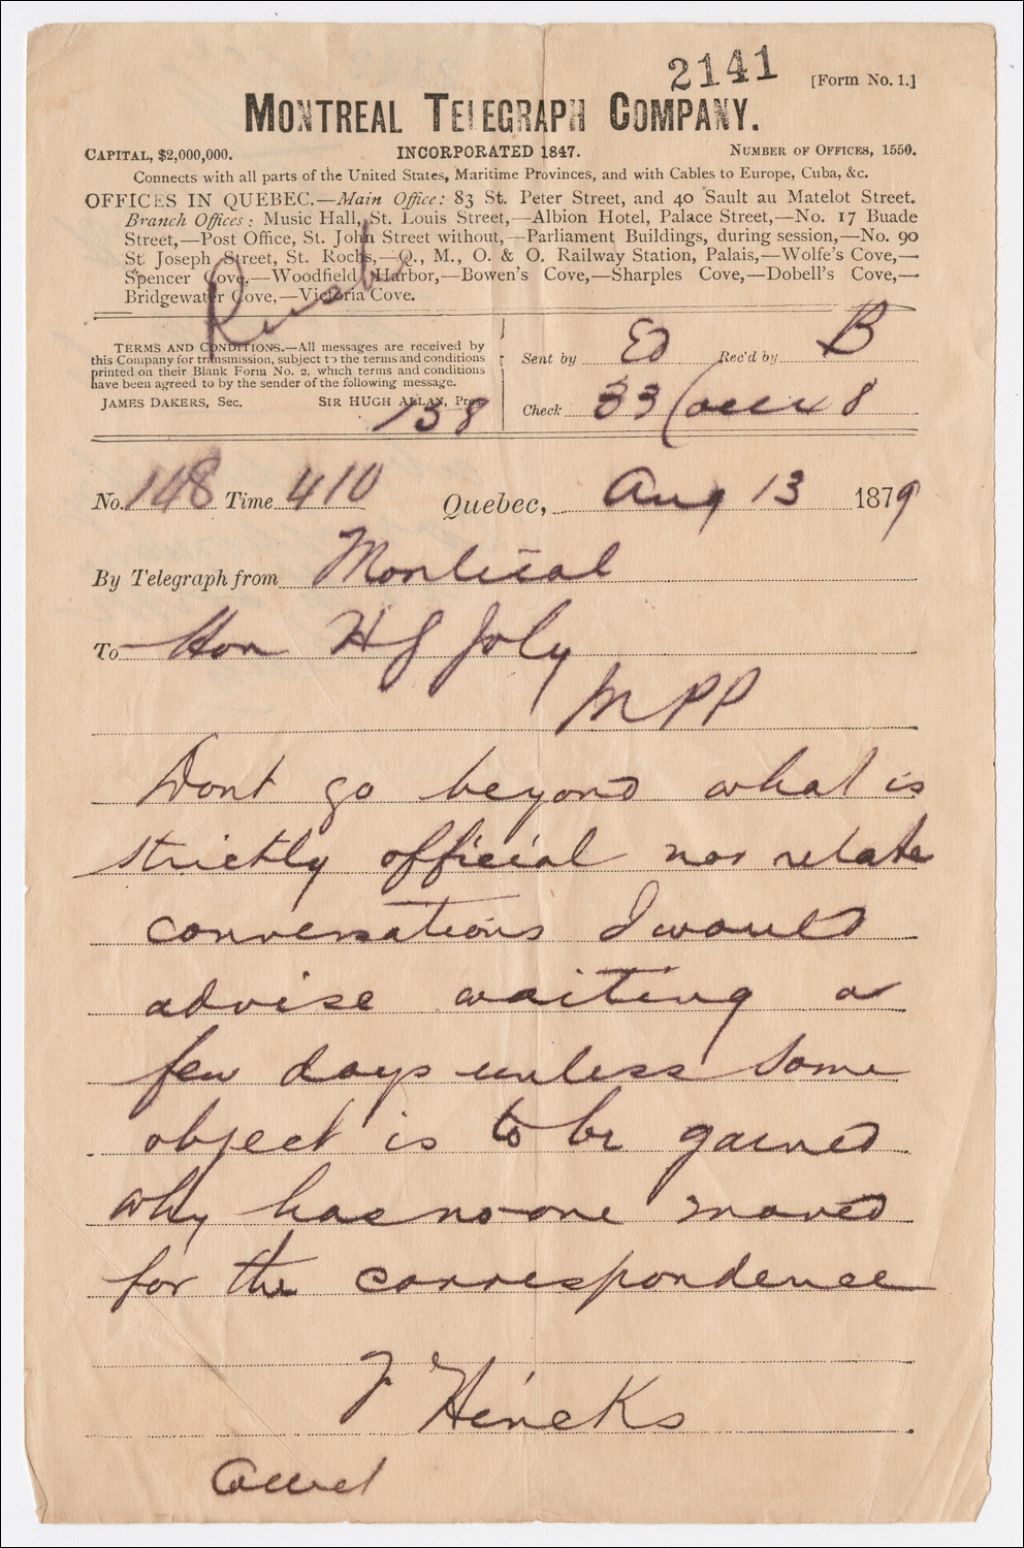 2141
[Form No. 1.]
MONTREAL TELEGRAPH COMPANY.
CAPITAL, $2,000,000. INCORPORATED 1847. NUMBER OF OFFICES, 1550.
Connects with all parts of the United States, Maritime Provinces, and with Cables to Europe, Cuba, &c.
OFFICES IN QUEBEC.—Main Office: 83 St. Peter Street, and 40 Sault au Matelot Street.
Branch Offices: Music Hall, St. Louis Street,—Albion Hotel, Palace Street,—No. 17 Buade
Street,—Post Office, St. John Street without,—Parliament Buildings, during session,—No. 90
St Joseph Street, St. Rochs,—Q., M., O. & O. Railway Station, Palais,—Wolfe's Cove,—
Spencer Cove,—Woodfield Harbor,—Bowen's Cove,—Sharples Cove,—Dobell's Cove,—
Bridgewater Cove,—Victoria Cove.
Rush
TERMS AND CONDITIONS.—All messages are received by
this Company for transmission, subject to the terms and conditions
printed on their Blank Form No. 2, which terms and conditions
have been agreed to by the sender of the following message.
JAMES DAKERS, Sec. SIR HUGH ALLAN, Pres.
138
Sent by Ed Rec'd by B
Check 33 8
No. 148 Time 410 Quebec, Aug 13 1879
By Telegraph from Montreal
To Hon H G Joly
MPP
Dont go beyond what is
strictly official nor relate
conversations I would
advise waiting a
few days unless some
object is to be gained
why has no one moved
for the correspondence
F Hincks